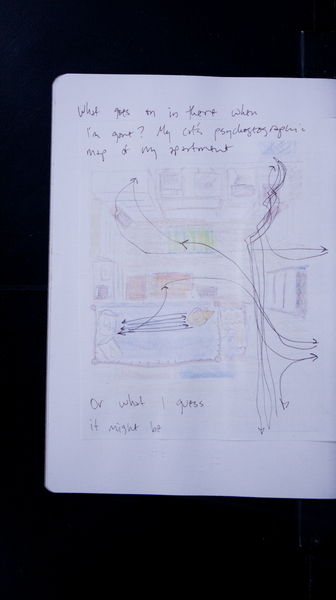 What goes on in there when
I'm gone? My cat's psychogeographic
map of my apartment
Or what I guess
it might be